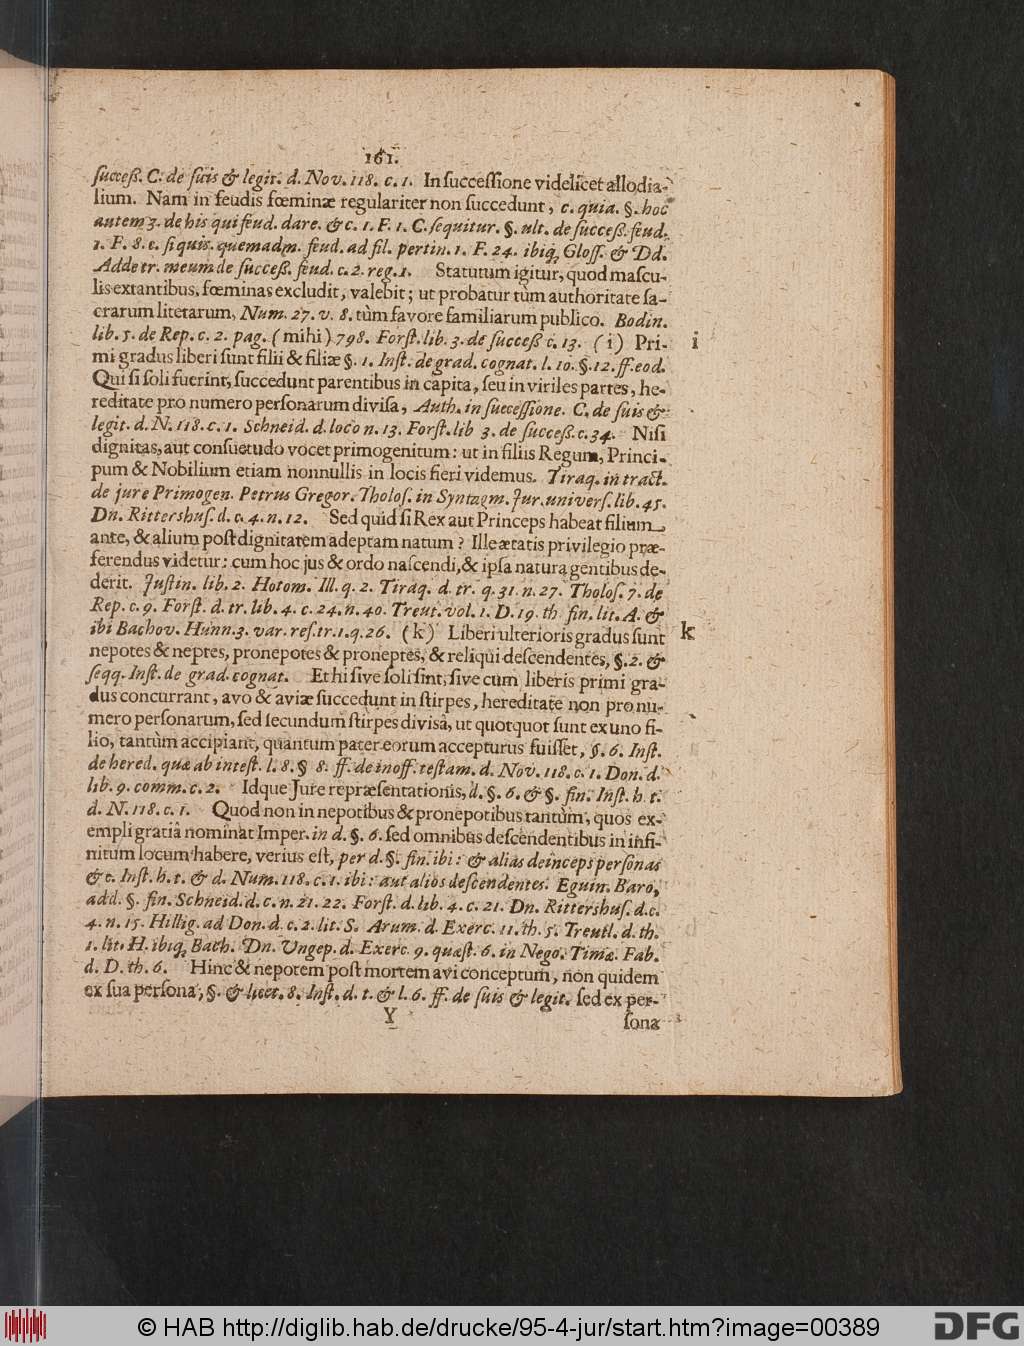 161.
success. C. de suis & legit. d. Nov. 118. c. 1. In successione videlicet allodia-
lium. Nam in feudis fœminæ regulariter non succedunt, c. quia. §. hoc
autem 3. de his qui feud. dare. & c. 1. F. 1. C. sequitur. §. ult. de success. feud.
1. F. 8. c. si quis. quemadm. feud. ad fil. pertin. 1. F. 24. ibiq; Gloss. & Dd.
Adde tr. meum de success. feud. c. 2. reg. 1. Statutum igitur, quod mascu-
lis extantibus, fœminas excludit, valebit; ut probatur tùm authoritate sa-
crarum literarum, Num. 27. v. 8. tùm favore familiarum publico. Bodin.
lib. 5. de Rep. c. 2. pag. (mihi) 798. Forst. lib. 3. de success c. 13. (i) Pri-
i
mi gradus liberi sunt filii & filiæ §. 1. Inst. de grad. cognat. l. 10. §. 12. ff. eod.
Qui si soli fuerint, succedunt parentibus in capita, seu in viriles partes, he-
reditate pro numero personarum divisa, Auth. in successione. C. de suis &
legit. d. N. 118. c. 1. Schneid. d. loco n. 13. Forst. lib 3. de success. c. 34. Nisi
dignitas, aut consuetudo vocet primogenitum: ut in filiis Regum, Princi-
pum & Nobilium etiam nonnullis in locis fieri videmus. Tiraq. in tract.
de jure Primogen. Petrus Gregor. Tholos. in Syntagm. Jur. univers. lib. 45.
Dn. Rittershus. d. c. 4. n. 12. Sed quid si Rex aut Princeps habeat filium
ante, & alium post dignitatem adeptam natum? Ille ætatis privilegio præ-
ferendus videtur: cum hoc jus & ordo nascendi, & ipsa natura gentibus de-
derit. Justin. lib. 2. Hotom. Ill. q. 2. Tiraq. d. tr. q. 31. n. 27. Tholos. 7. de
Rep. c. 9. Forst. d. tr. lib. 4. c. 24. n. 40. Treut. vol. 1. D. 19. th. fin. lit. A. &
ibi Bachov. Hunn. 3. var. res. tr. 1. q. 26. (k) Liberi ulterioris gradus sunt
k
nepotes & neptes, pronepotes & proneptes, & reliqui descendentes, §. 2. &
seqq. Inst. de grad. cognat. Et hi sive soli sint, sive cum liberis primi gra-
dus concurrant, avo & aviæ succedunt in stirpes, hereditate non pro nu-
mero personarum, sed secundum stirpes divisâ, ut quotquot sunt ex uno fi-
lio, tantùm accipiant, quantum pater eorum accepturus fuisset, §. 6. Inst.
de hered. quæ ab intest. l. 8. § 8. ff. de inoff. testam. d. Nov. 118. c. 1. Don. d.
lib. 9. comm. c. 2. Idque Jure repræsentationis, d. §. 6. & §. fin. Inst. h. t.
d. N. 118. c. 1. Quod non in nepotibus & pronepotibus tantùm, quos ex-
empli gratiâ nominat Imper. in d. §. 6. sed omnibus descendentibus in infi-
nitum locum habere, verius est, per d. §. fin. ibi: & alias deinceps personas
&c. Inst. h. t. & d. Num. 118. c. 1. ibi: aut alios descendentes. Eguin. Baro,
add. §. fin. Schneid. d. c. n. 21. 22. Forst. d. lib. 4. c. 21. Dn. Rittershus. d. c.
4. n. 15. Hillig. ad Don. d. c. 2. lit. S. Arum. d. Exerc. 11. th. 5. Treutl. d. th.
1. lit. H. ibiq; Bach. Dn. Ungep. d. Exerc. 9. quæst. 6. in Nego. Timæ. Fab.
d. D. th. 6. Hinc & nepotem post mortem avi conceptum, non quidem
ex sua persona, §. & licet. 8. Inst. d. t. & l. 6. ff. de suis & legit. sed ex per-
Y
sona
© HAB http://diglib.hab.de/drucke/95-4-jur/start.htm?image=00389
DFG